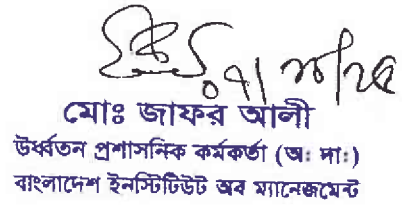 মোঃ জাফর আলী
উর্ধ্বতন প্রশাসনিক কর্মকর্তা (অঃ দাঃ)
বাংলাদেশ ইনস্টিটিউট অব ম্যানেজমেন্ট